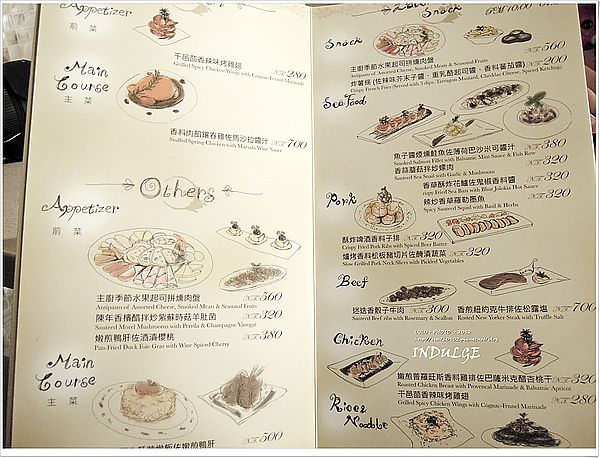 Appetizer
前 菜
干邑茴香辣味烤雞翅 NT 280
Grilled Spicy Chicken Wings with Cognac-Fennel Marinade
Main
Course
主 菜
香料肉餡鑲春雞佐馬沙拉醬汁 NT 700
Stuffed Spring Chicken with Marsala Wine Sauce
Others
Appetizer
前 菜
主廚季節水果起司拼燻肉盤 NT 560
Antipasto of Assorted Cheese, Smoked Meats & Seasonal Fruits
陳年香檳醋拌炒紫蘇蒔菇羊肚菌 NT 320
Sauteed Morel Mushrooms with Perrela & Champagne Vinegar
嫩煎鴨肝佐酒漬櫻桃 NT 380
Pan-Fried Duck Foie Gras with Wine Spiced Cherry
Main
Course
主 菜
NT 500
Snack
Snack
主廚季節水果起司拼燻肉盤 NT 560
Antipasto of Assorted Cheese, Smoked Meats & Seasonal Fruits
炸薯條 (佐辣味芥末子醬、重乳酪起司醬、香料蕃茄醬) NT 200
Crispy French Fries (Served with 3 dips: Tarragon Mustard, Cheddar Cheese, Spiced Ketchup)
Seafood
魚子醬煙燻鮭魚佐薄荷巴沙米可醬汁 NT 380
Smoked Salmon Fillet with Balsamic Mint Sauce & Fish Roe
香蒜蘑菇拌炒螺肉 NT 320
Sauteed Snail with Garlic & Mushroom
香草酥炸花鱸佐鬼椒香料醬 NT 320
Crispy Fried Sea Bass with Bhut Jolokia Hot Sauce
辣炒香草羅勒墨魚 NT 320
Spicy Sauteed Squid with Basil & Herbs
Pork
酥炸啤酒香料子排 NT 320
Crispy Fried Pork Ribs with Spiced Beer Batter
爐烤香料松板豬切片佐醃漬蔬菜 NT 320
Slow Grilled Pork Neck Slices with Pickled Vegetables
Beef
迷迭香骰子牛肉 NT 300
Sauteed Beef ribs with Rosemary & Scallion
香煎紐約克牛排佐松露塩 NT 700
Rosted New Yorker Steak with Truffle Salt
INDULGE
Chicken
嫩煎普羅旺斯香料雞排佐巴薩米克醋杏桃干 NT 320
Roasted Chicken Breast with Provencal Marinade & Balsamic Apricot
干邑茴香辣味烤雞翅 NT 320
Grilled Spicy Chicken Wings with Cognac-Fennel Marinade
Rice &
Noodle